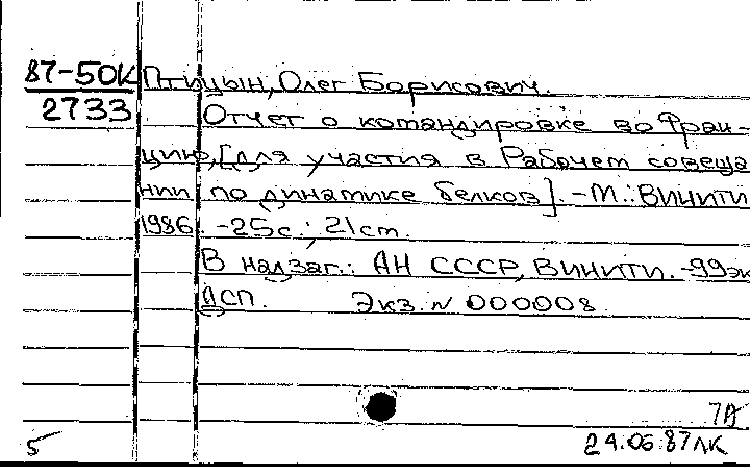 87-50К Птицын, Олег Борисович.
2733 Отчет о командировке во Фран-
цию, [для участия в Рабочем совеща
нии по динамике белков]. -М.: ВИНИТИ
1986. -25с.; 21см.
В надзаг.: АН СССР, ВИНИТИ. -99эк
ДСП. Экз. N 000008.
5 24.06.87ЛК